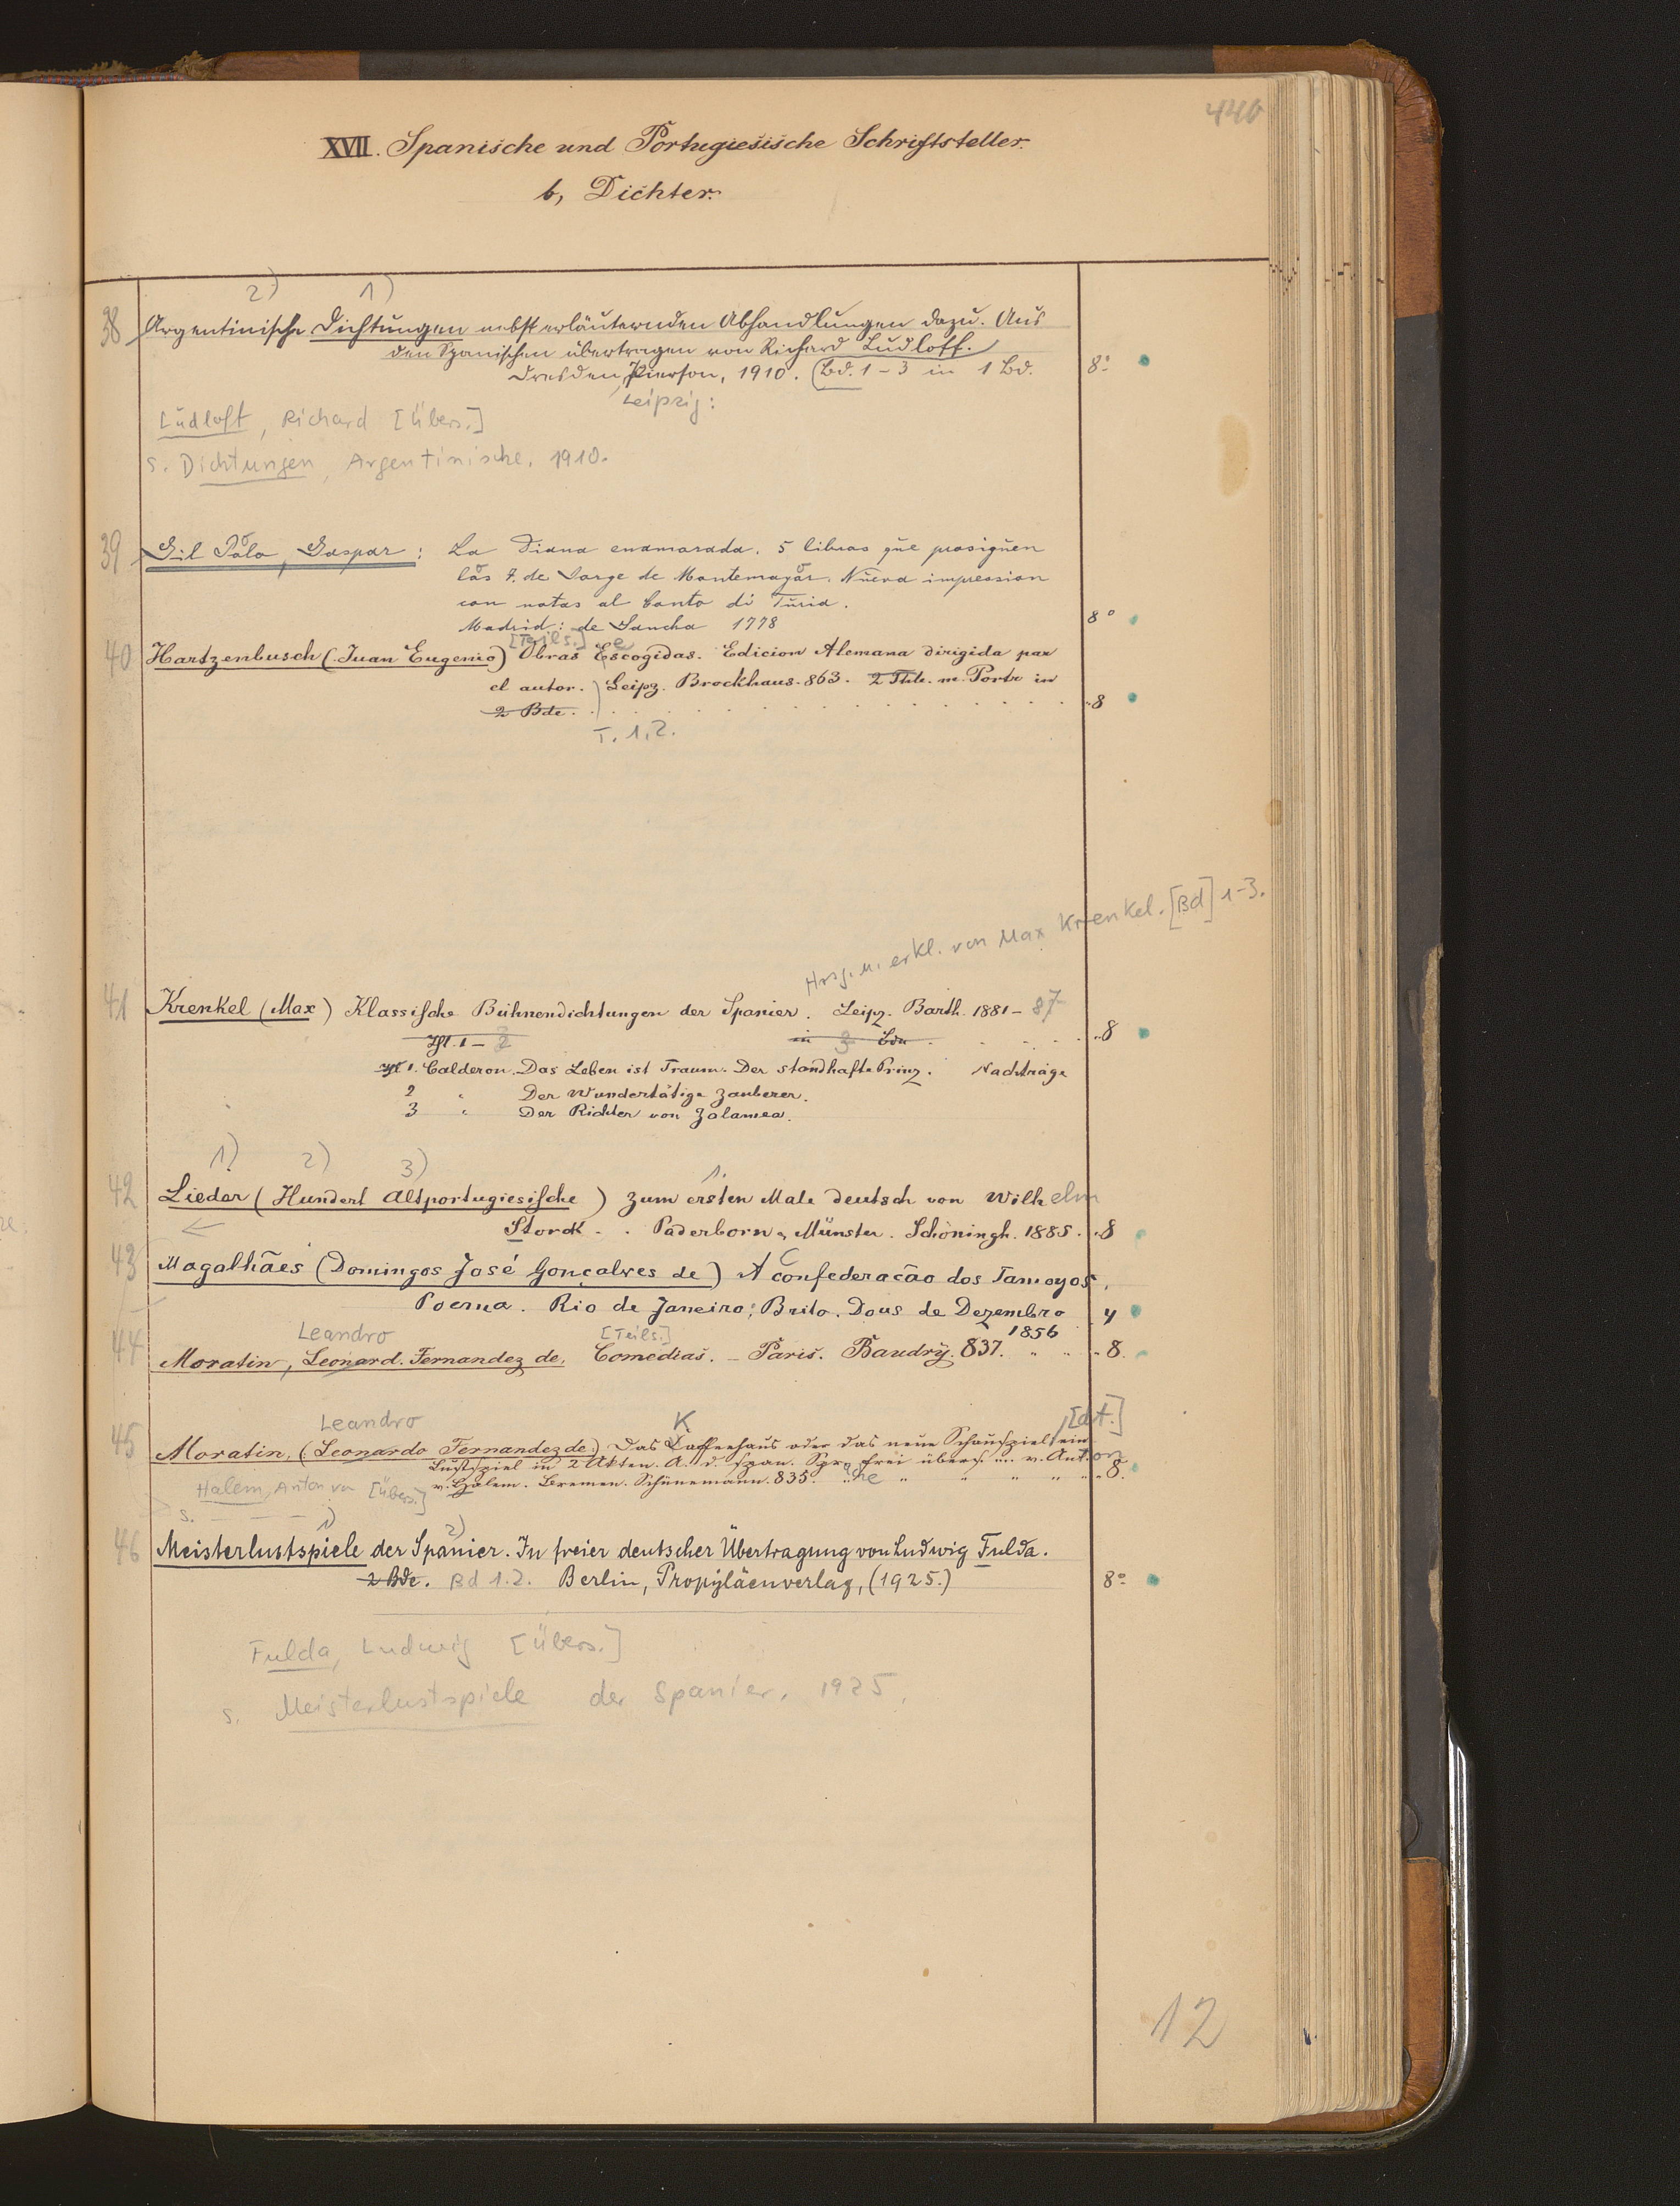 440
XVII. Spanische und Portugiesische Schriftsteller.
b, Dichter.
2) 1)
38 Argentinische Dichtungen nebst erläuternden Abhandlungen dazu. Aus
den Spanischen übertragen von Richard Ludloff.
Dresden, Pierson, 1910. (Bd. 1-3 in 1 Bd. 8°
Leipzig:
Ludloff, Richard [Übers.]
s. Dichtungen, Argentinische. 1910.
39 Gil Polo, Gaspar: La Diana enamorada. 5 libros que prosiguen
los 7. de Jorge de Montemayor. Nueva impression
con notas al Canto di Turia.
Madrid: de Sancha 1778 8°
[Teils.] e
40 Hartzenbusch (Juan Eugenio) Obras Escogidas. Edicion Alemana dirigida par
el autor. Leipz. Brockhaus. 863. 2 Thle. m. Portr in
2 Bde. 8
T. 1.2.
Hrsg. u. erkl. von Max Krenkel. [Bd] 1-3.
41 Krenkel (Max) Klassische Bühnendichtungen der Spanier. Leipz. Barth. 1881-87
Thl. 1-3 in 3 Bdn. 8
Thl 1. Calderon. Das Leben ist Traum. Der standhafte Prinz. Nachträge
2 " Der Wundertätige Zauberer.
3 " Der Richter von Zalamea.
1) 2) 3) 1.
42 Lieder (Hundert Altportugiesische) zum ersten Male deutsch von Wilhelm
Storck. Paderborn u Münster. Schöningh. 1885. 8
43 Magalhães (Domingos José Gonçalves de) A confederacão dos Tamoyos,
Poema. Rio de Janeiro; Brito. Dous de Dezembro 4
1856
Leandro [Teils.]
44 Moratin, Leonard. Fernandez de, Comedias. - Paris. Baudry. 837. " " 8.
Leandro K [dt.]
45 Moratin, (Leonardo Fernandez de.) Das Caffeehaus oder das neue Schauspiel, ein
Lustspiel in 2 Akten. A. d. span. Sprache frei übers. v. Anton
v. Halem. Bremen. Schünemann. 835. " " " " " 8.
Halem, Anton von [Übers.]
s. — — —
1) 2)
46 Meisterlustspiele der Spanier. In freier deutscher Übertragung von Ludwig Fulda.
2 Bde. Bd 1.2. Berlin, Propyläenverlag, (1925.) 8°
Fulda, Ludwig [Übers.]
s. Meisterlustspiele der Spanier. 1925.
12